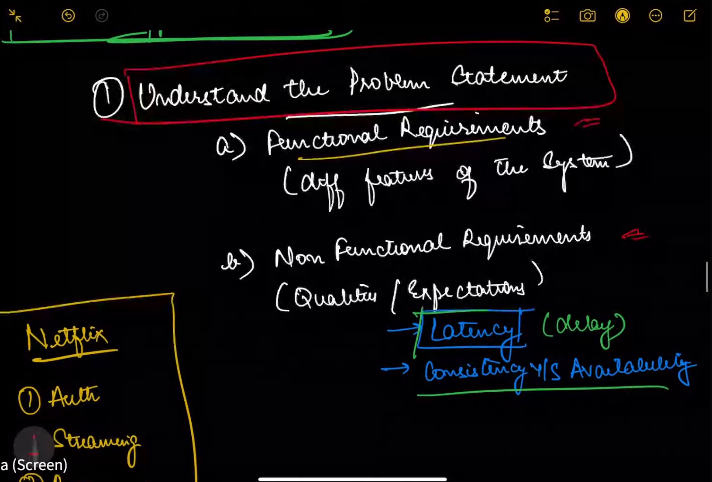 ① Understand the Problem Statement
a) Functional Requirements
(diff features of the System)
b) Non Functional Requirements
(Qualities / Expectations)
→ Latency (delay)
→ Consistency v/s Availability
Netflix
① Auth
Streaming
a (Screen)